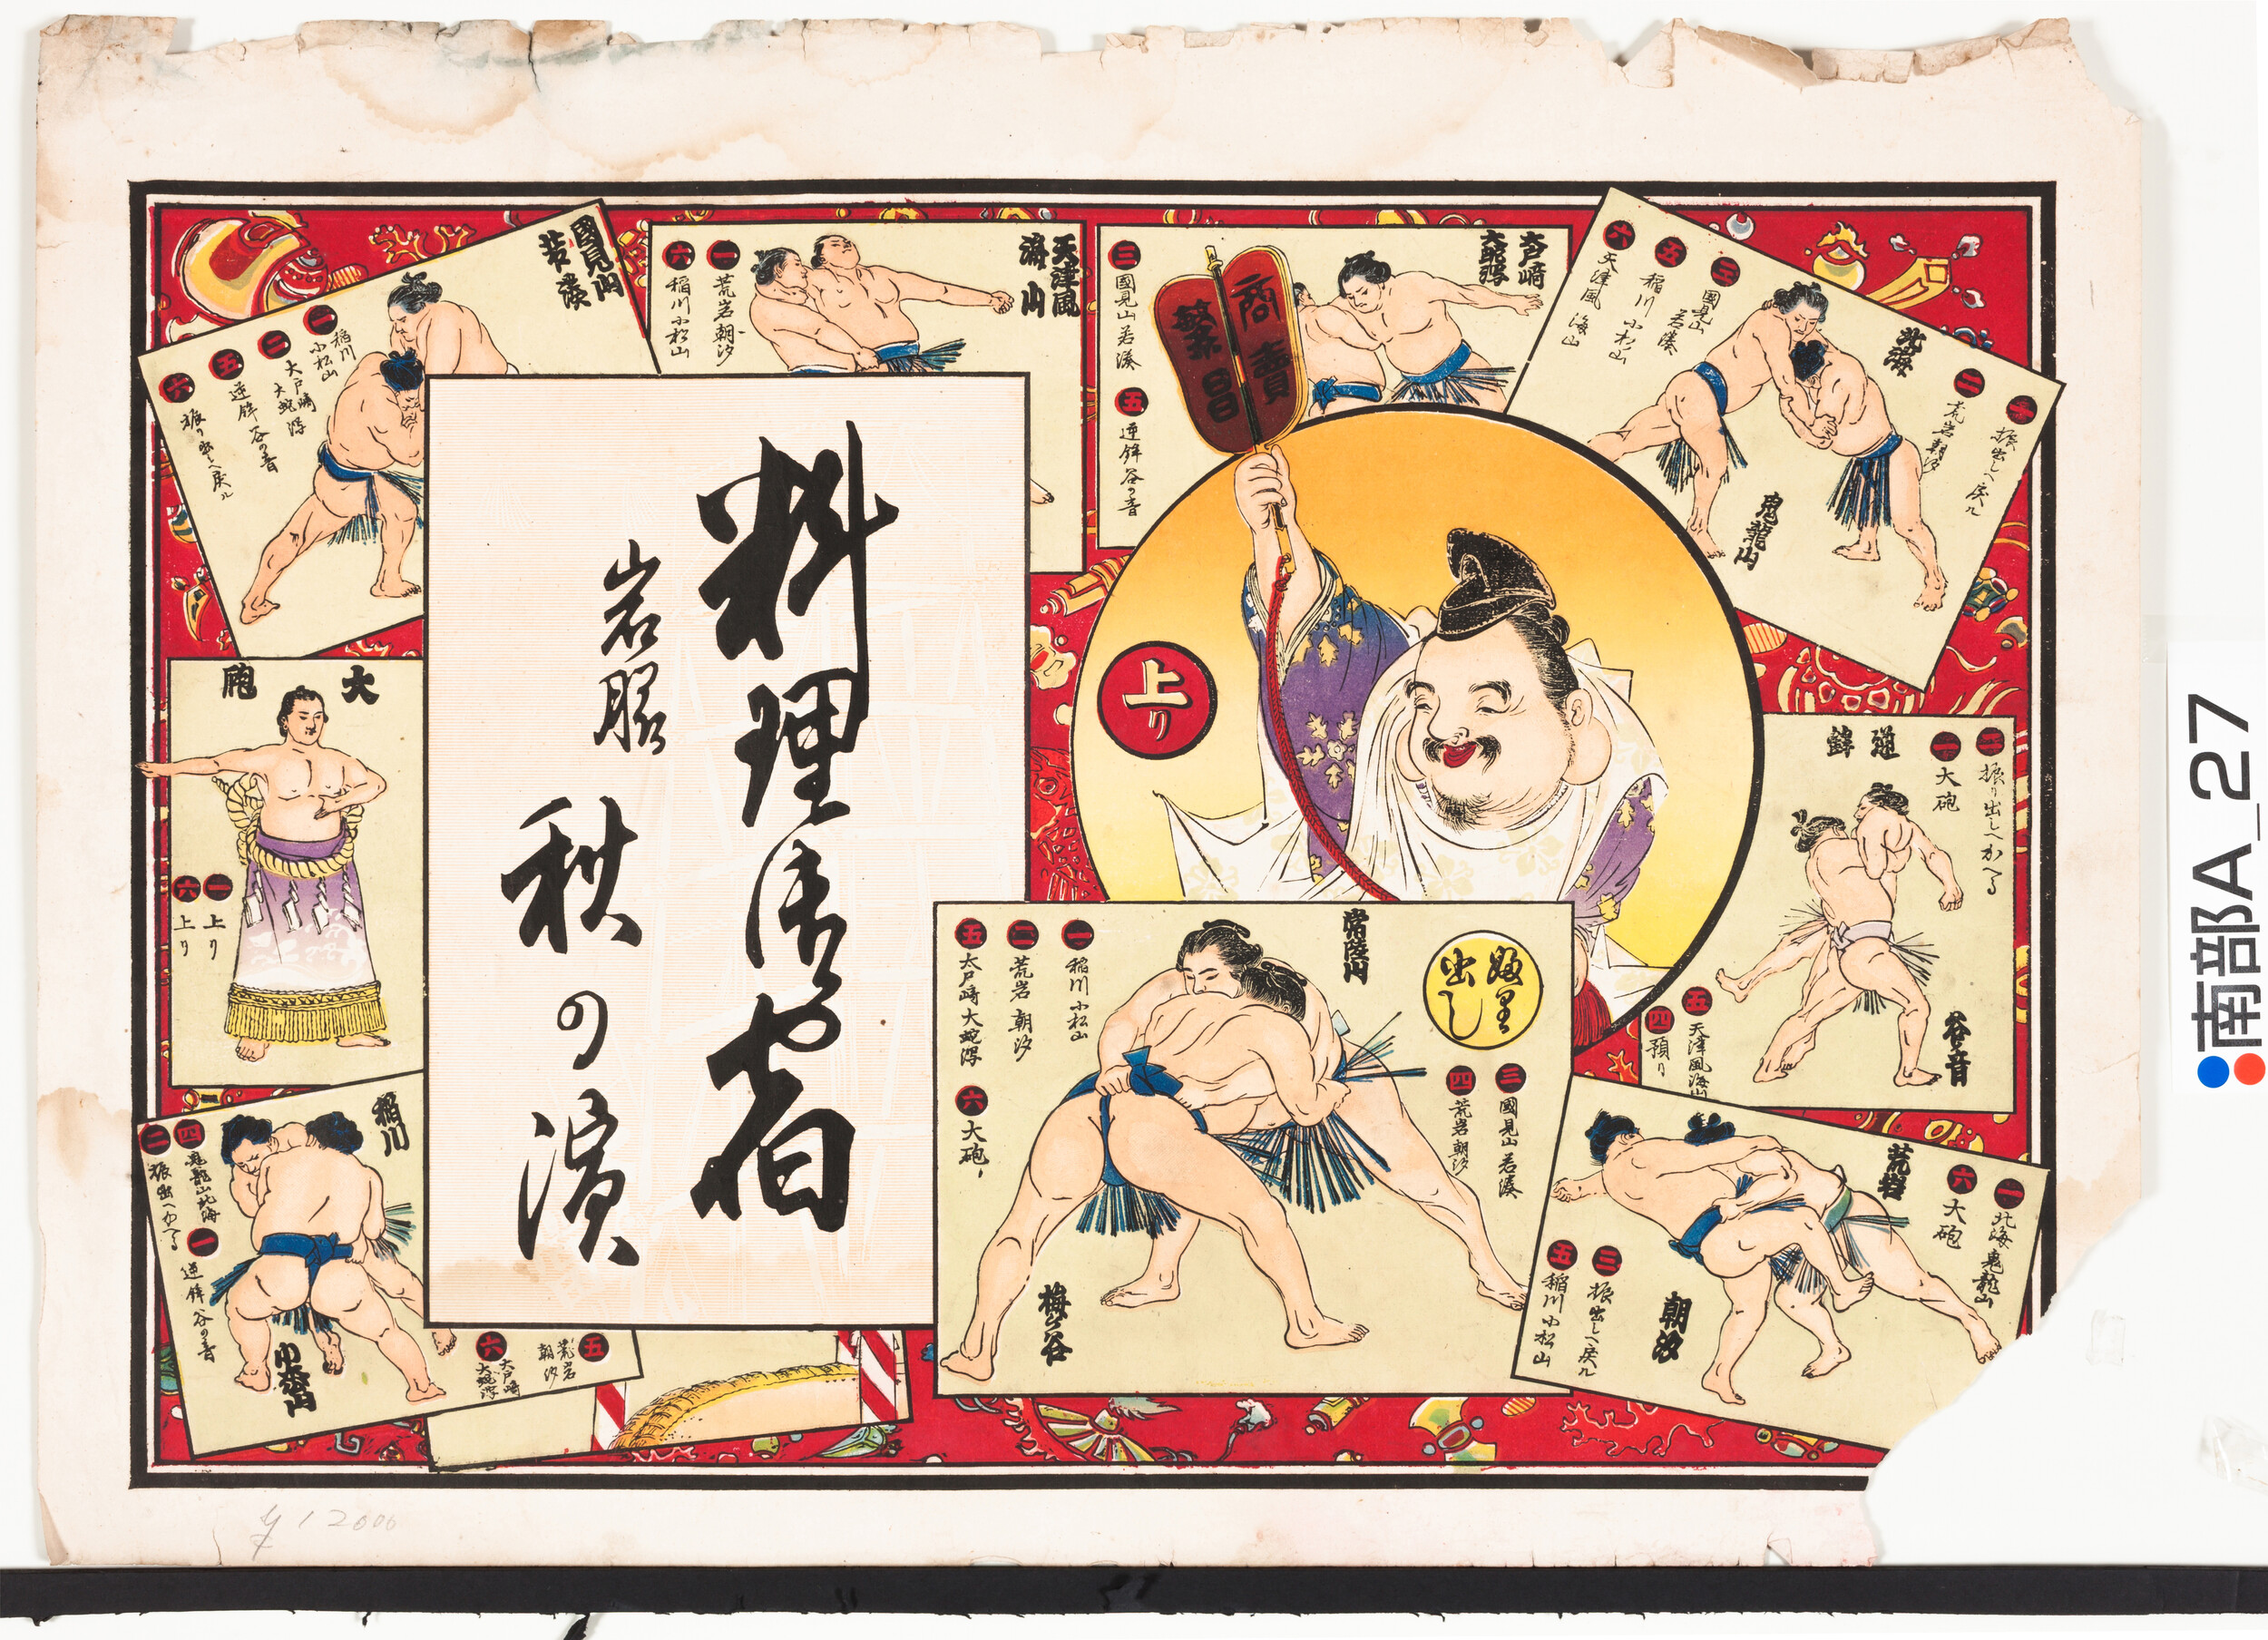 國見山
若湊
一 稲川 小松山
二 大戸崎 大蛇潟
五 逆鉾 谷の音
六 振り出しへ戻ル
天津風
海山
一 荒岩 朝汐
六 稲川 小松山
大戸崎
大蛇潟
三 國見山 若湊
五 逆鉾 谷の音
商賣
繁昌
北海
鬼龍山
二 荒岩 朝汐
三 國見山 若湊
五 稲川 小松山
六 天津風 海山
振出しへ戻ル
上り
料理御宿
岩脇
秋の濱
大砲
一 上り
六 上り
逆鉾
谷音
二 振り出しへかへる
一 大砲
五 天津風 海山
四 預り
振り出し
常陸山
梅ヶ谷
一 稲川 小松山
二 荒岩 朝汐
五 大戸崎 大蛇潟
六 大砲
三 國見山 若湊
四 荒岩 朝汐
荒岩
朝汐
一 北海 鬼龍山
六 大砲
三 振出しへ戻ル
五 稲川 小松山
稲川
小松山
四 鬼龍山 北海
二 振出へかへる
一 逆鉾 谷の音
五 荒岩 朝汐
六 大戸崎 大蛇潟
12000
南部A_27